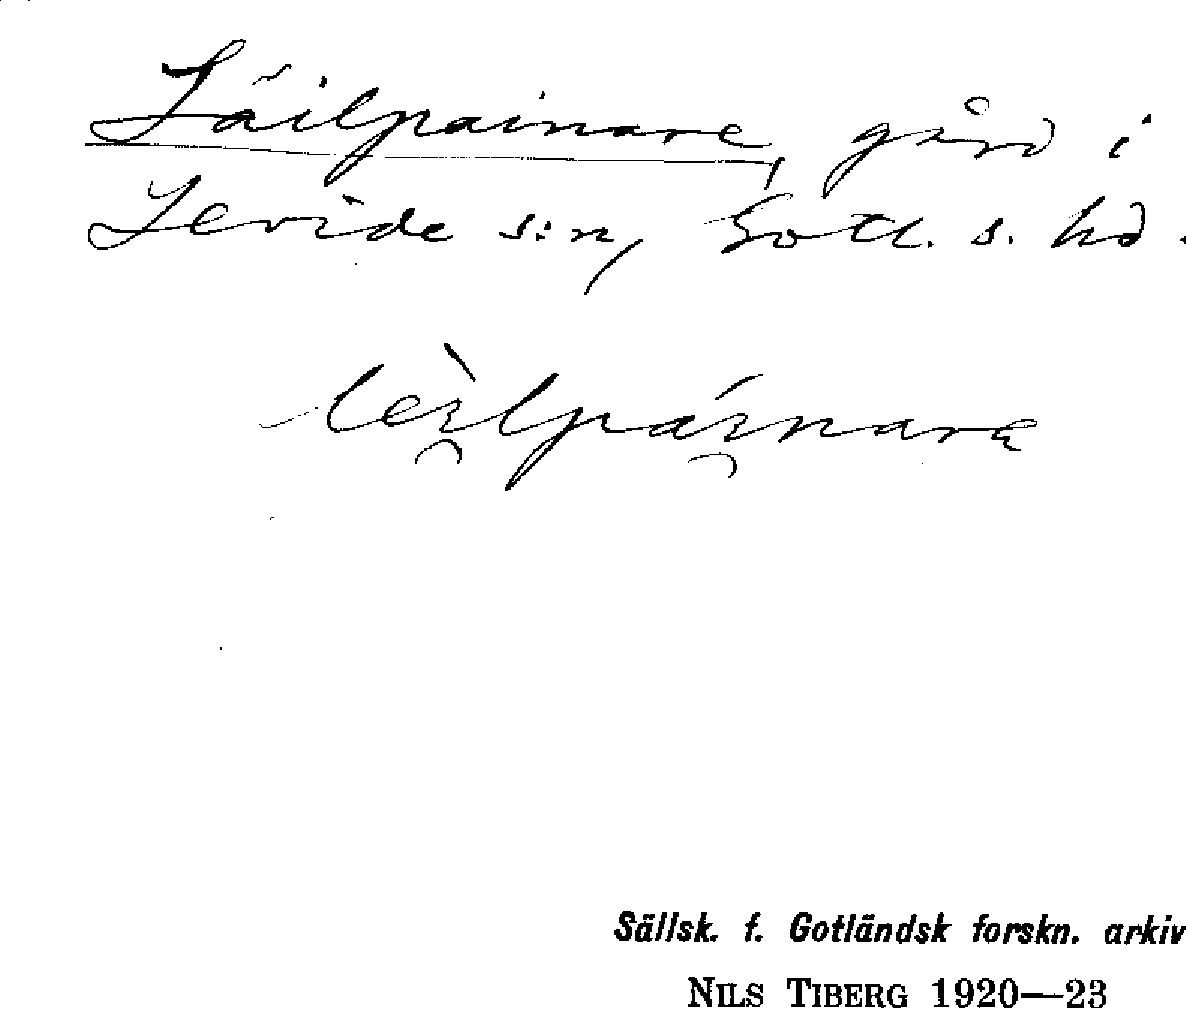 Läilpainare, gård i
Levide s:n, Gotl. s. hd.
lèi̯lpái̯nara
Sällsk. f. Gotländsk forskn. arkiv
NILS TIBERG 1920—23